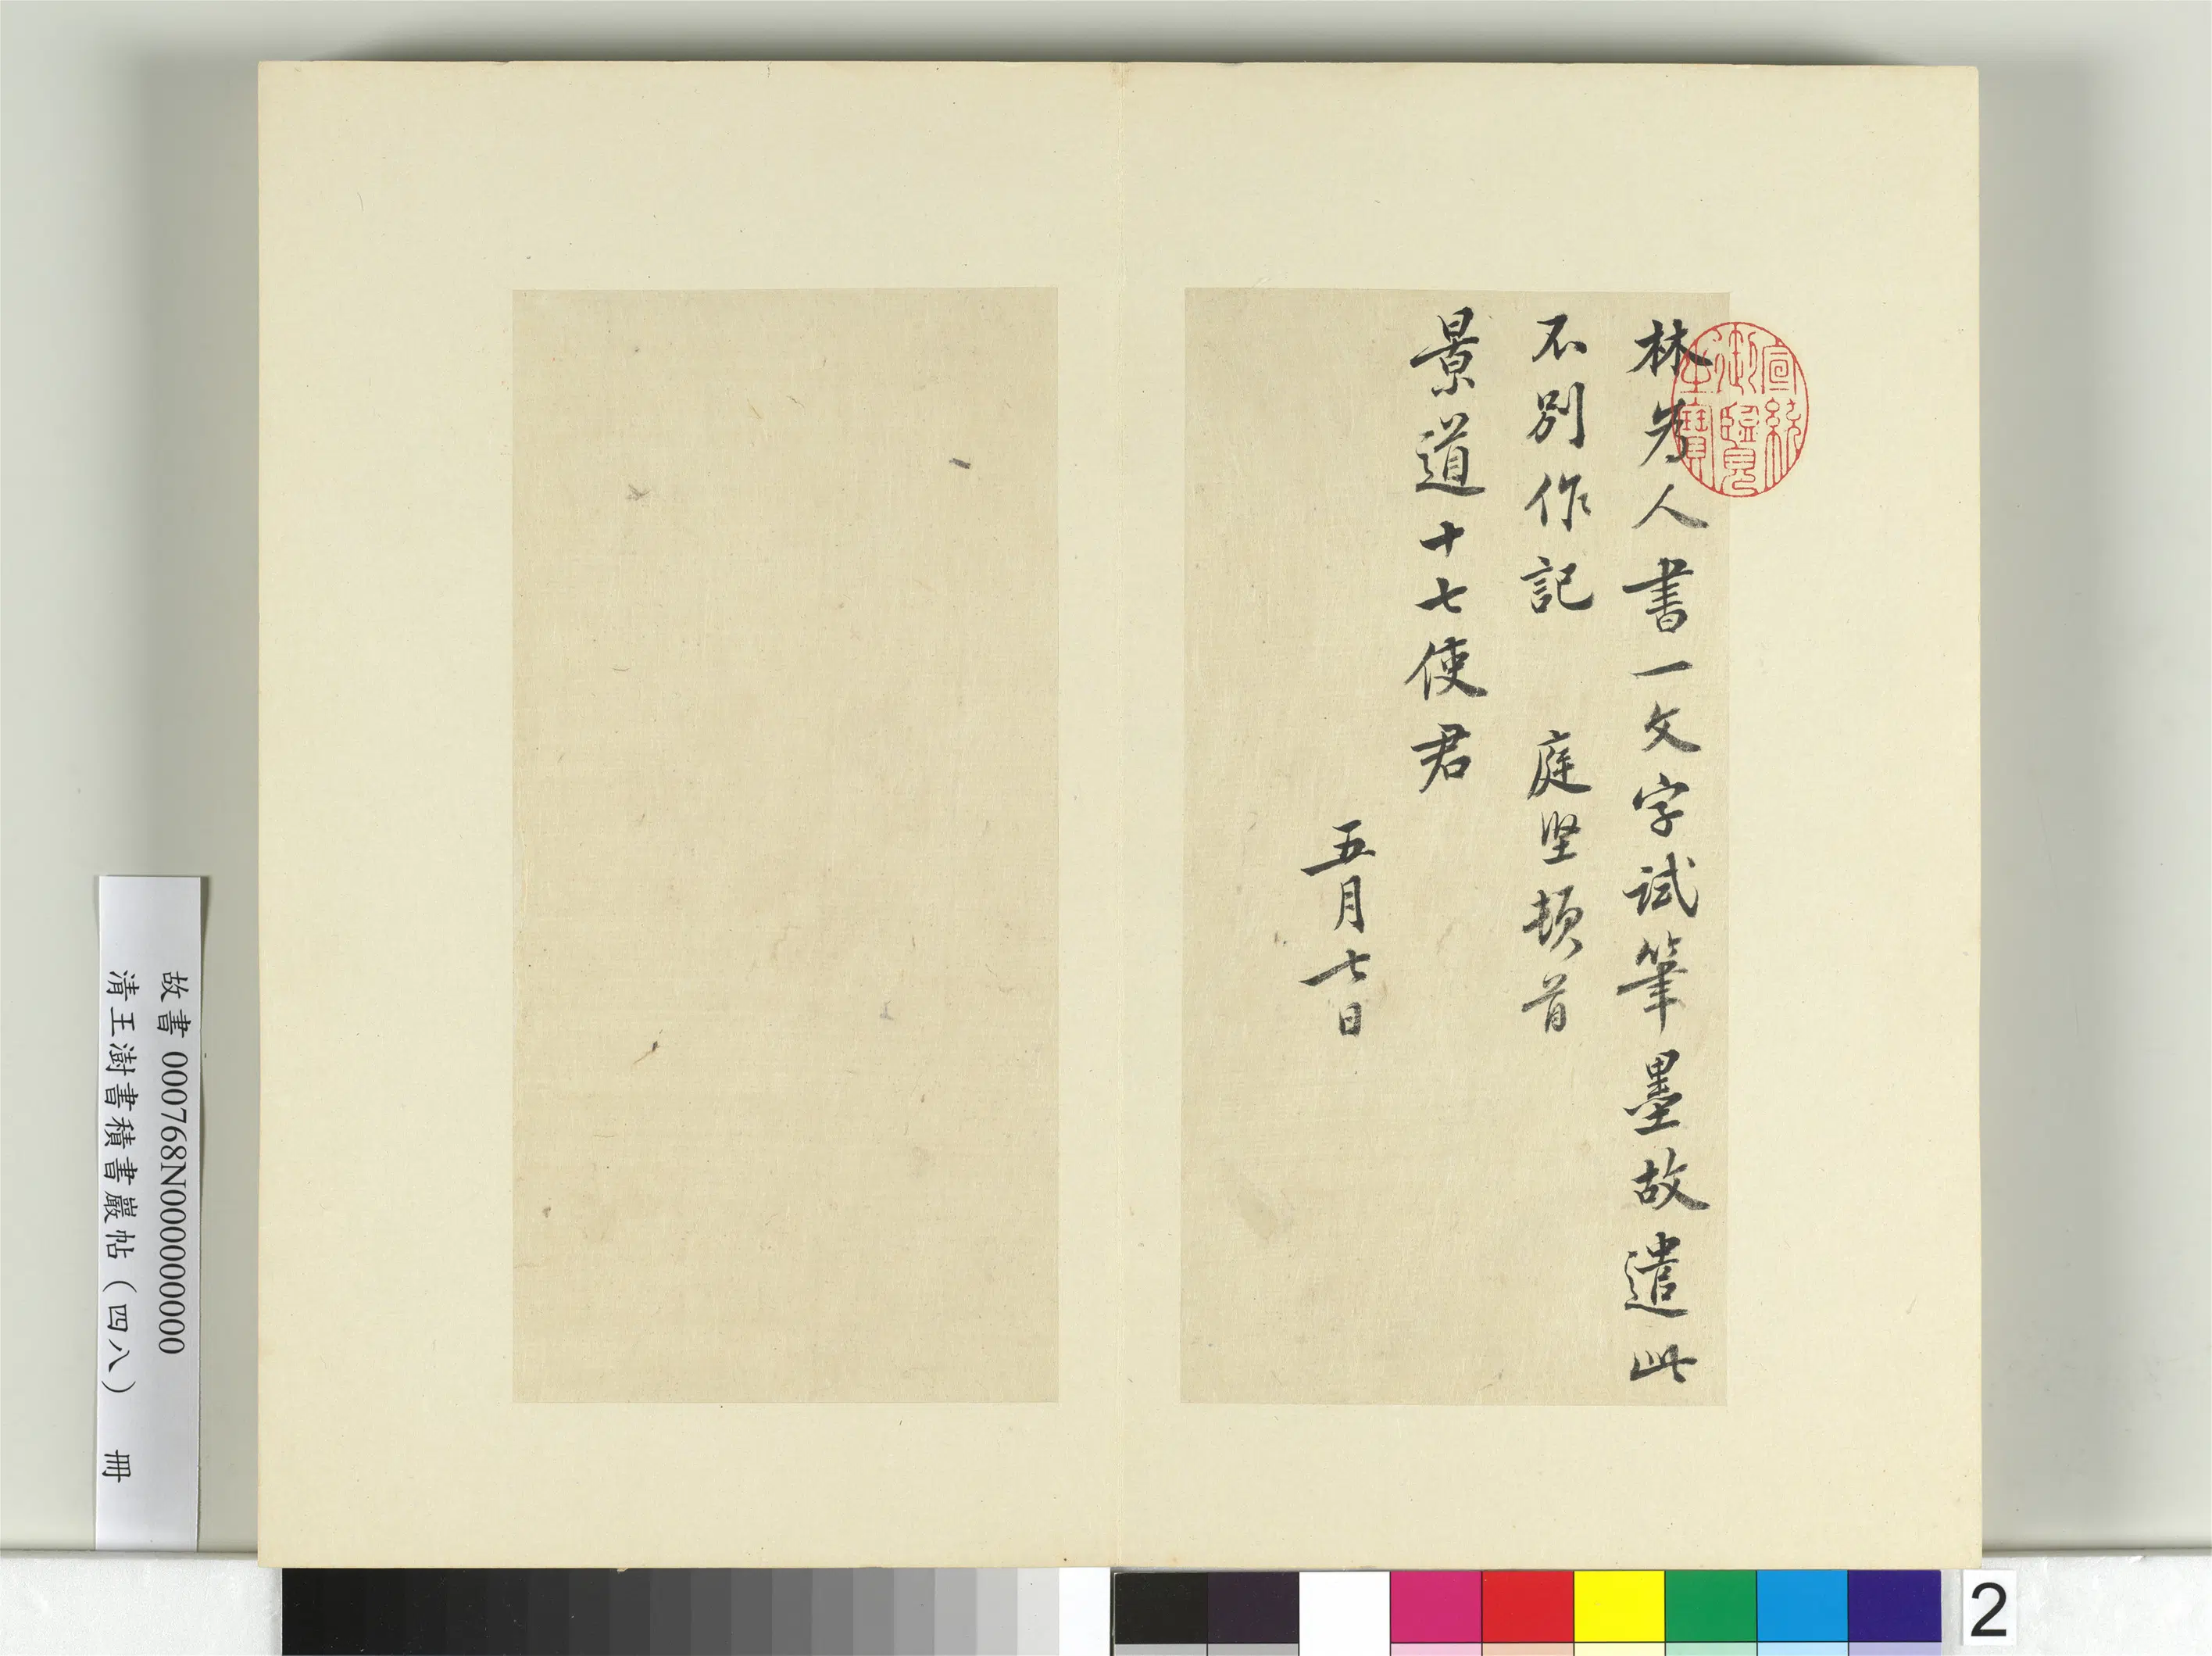 林為人書一文字試筆墨故遣此
不別作記 庭坚頓首
景道十七使君
五月七日
宣統御覽之寶
故書 000768N000000000
清王澍書積書巖帖（四八） 冊
2